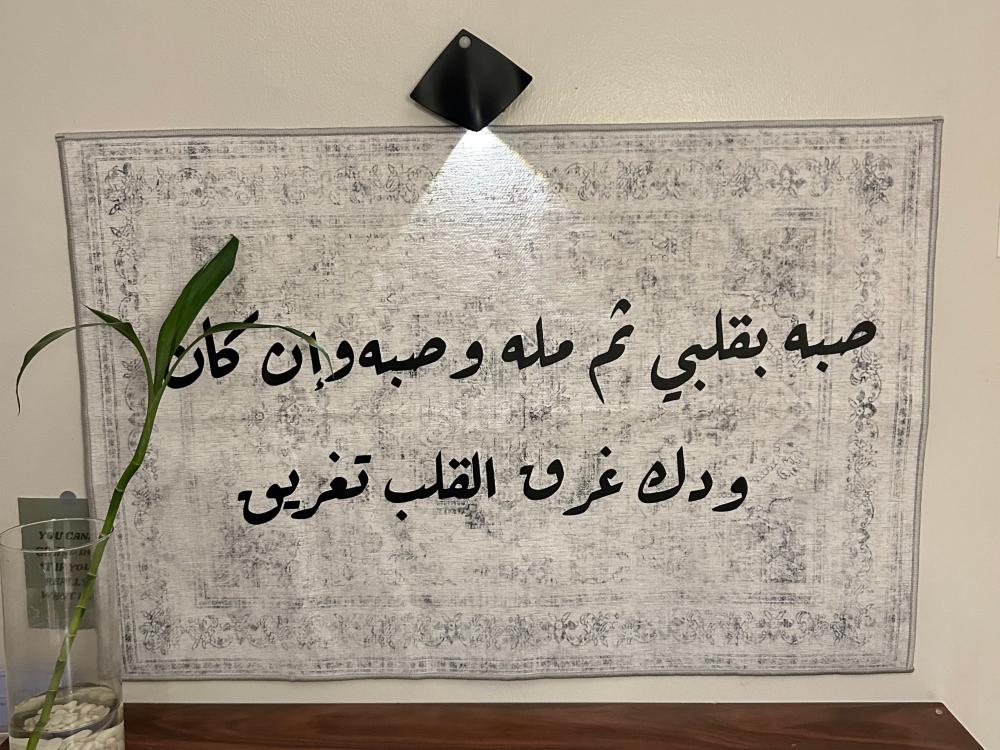 صبه بقلبي ثم مله وصبه وإن كان
ودك غرق القلب تغريق
YOU CAN
IF YOU
REALLY